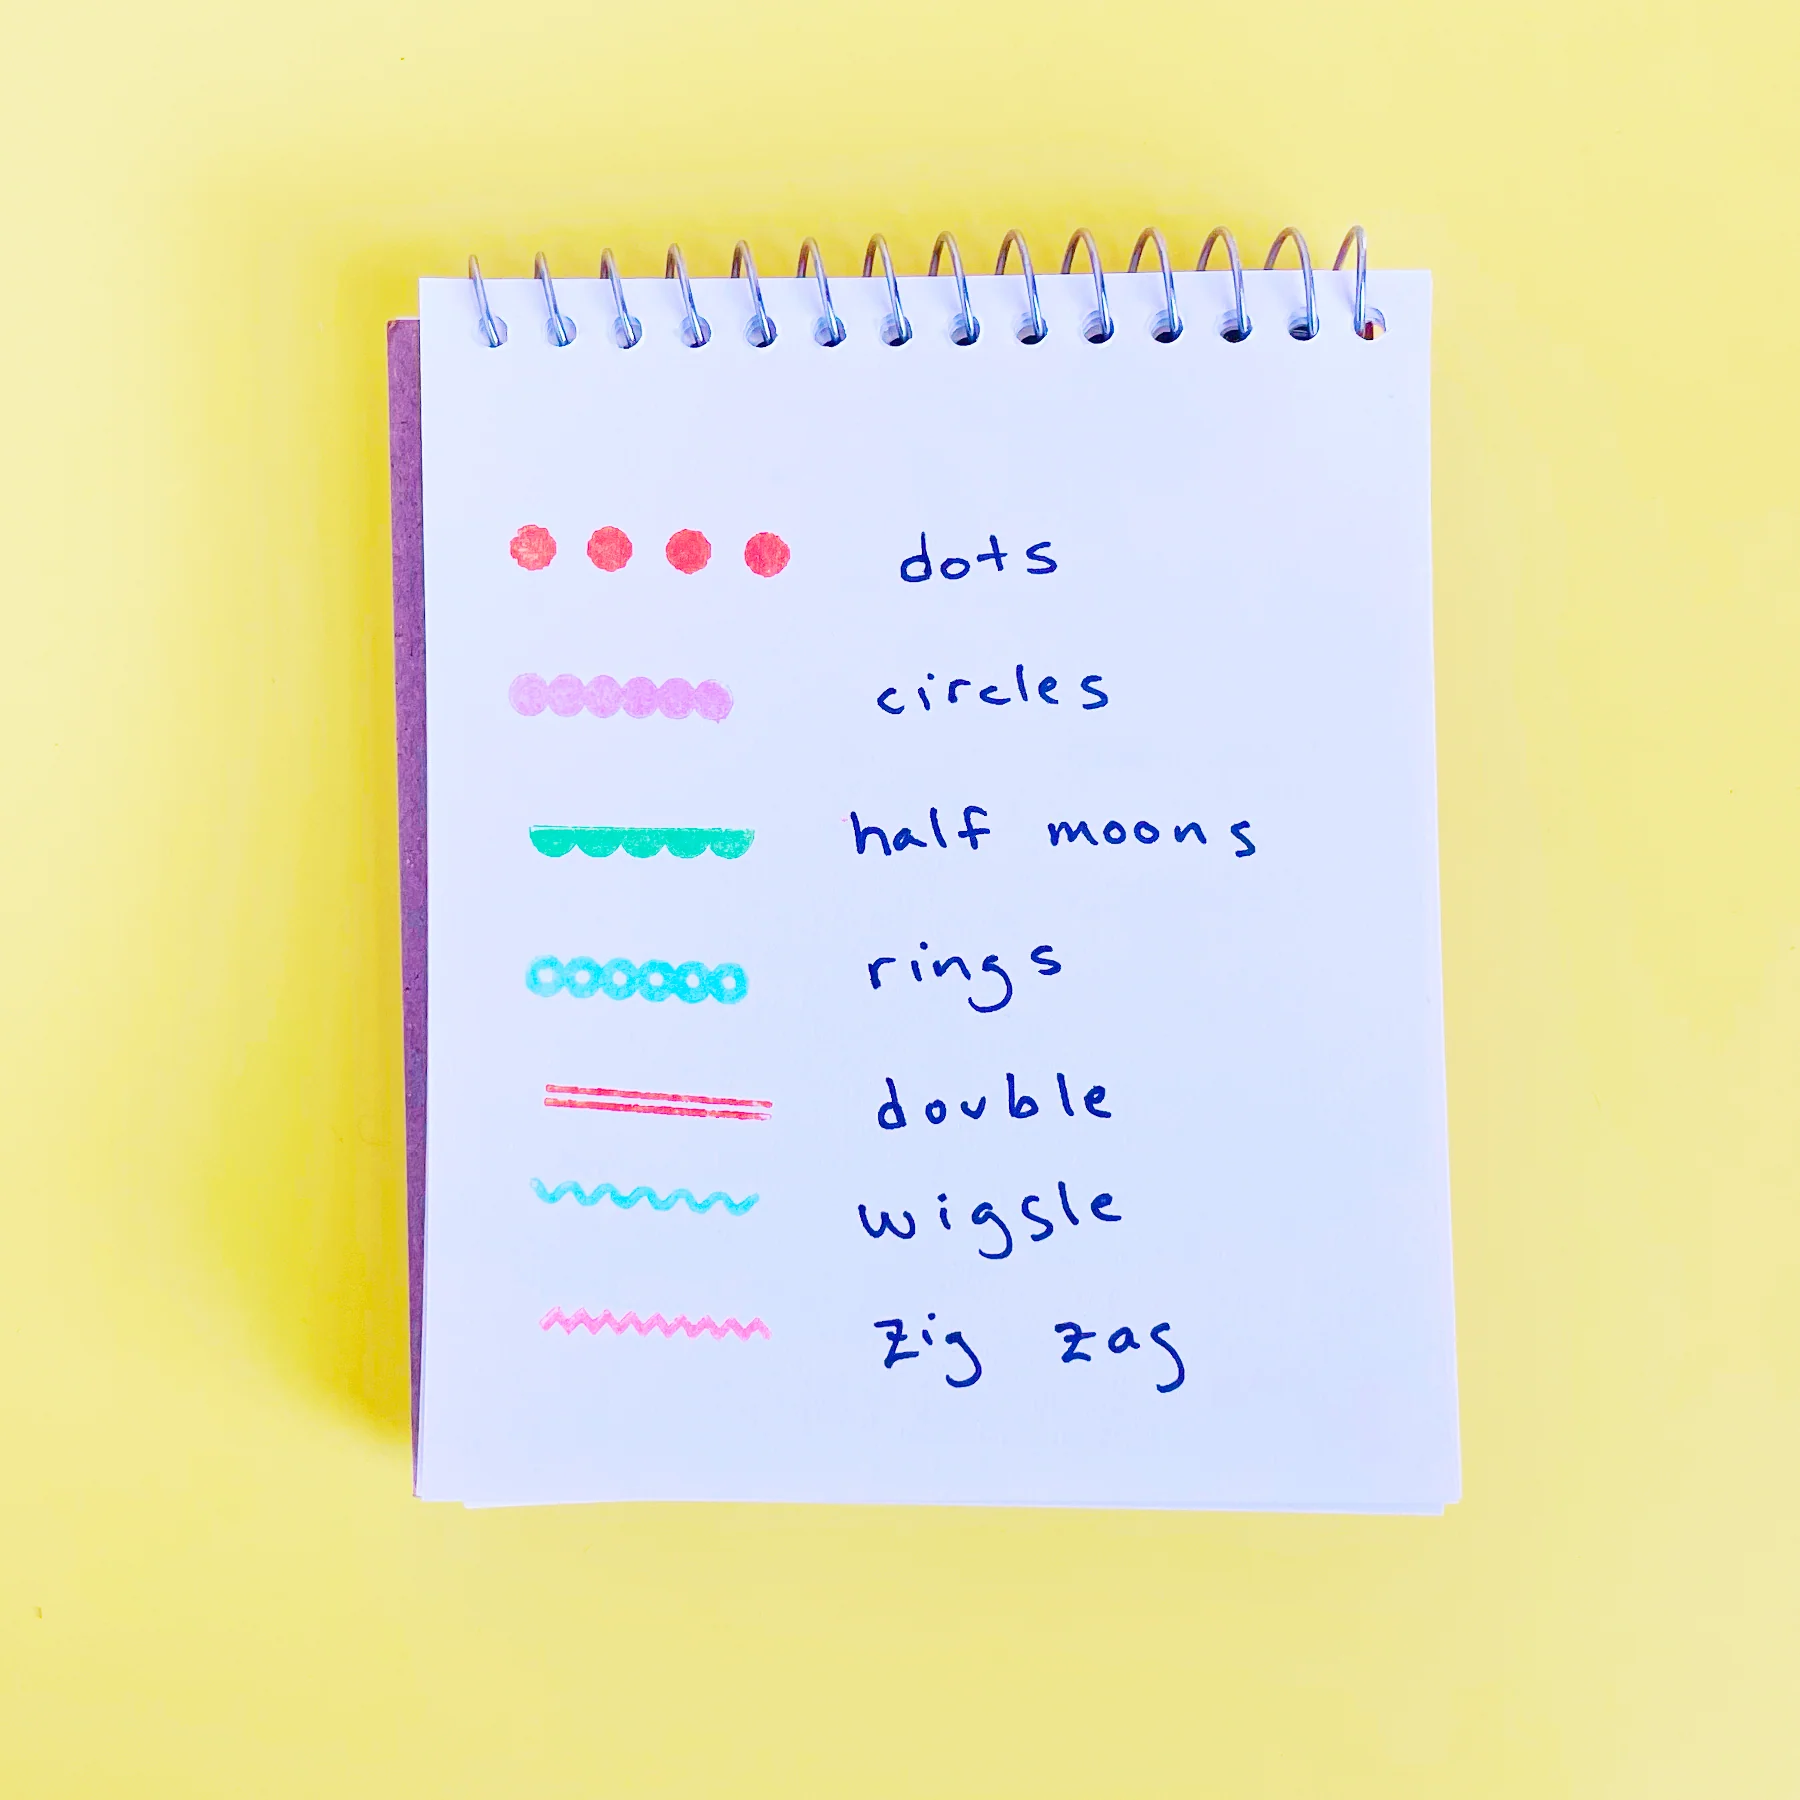 dots
circles
half moons
rings
double
wigsle
zig zag